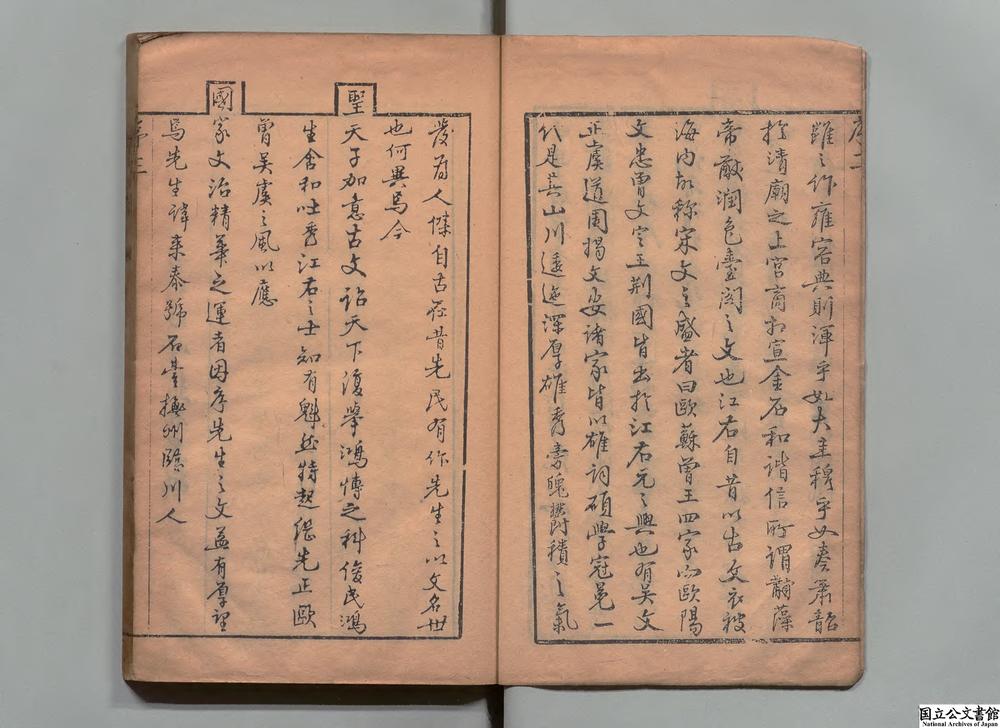 序二
雖之作雍容典則渾乎如大圭穆乎如奏簫韶
於清廟之上宮商相宣金石和諧信所謂黼藻
帝猷潤色臺閣之文也江右自昔以古文衣被
海內故称宋文之盛者曰歐蘇曾王四家而歐陽
文忠曾文定王荊國皆出於江右元之興也有吳文
正虞道園揭文安諸家皆以雄詞碩學冠冕一
代是其山川逶迤深厚雄秀旁魄欝積之氣
發為人傑自古於昔先民有作先生之以文名世
也何異焉今
聖天子加意古文詔天下復舉鴻博之科俊民鴻
生含和吐秀江右之士知有魁然特起繼先正歐
曾吳虞之風以應
國家文治精華之運者因序先生之文益有厚望
焉先生諱来泰號石臺撫州臨川人
序三
国立公文書館
National Archives of Japan